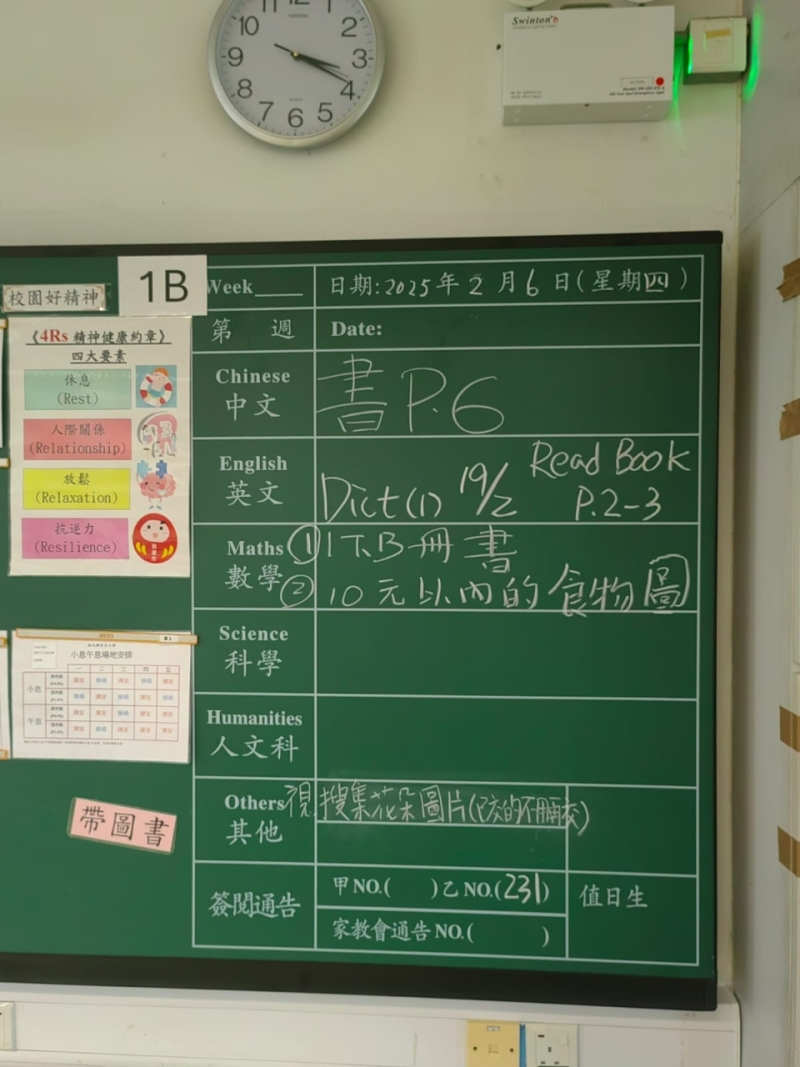 12
11
10
9
8
7
6
5
4
3
2
1
Swinton
校園好精神
1B
Week____
日期:2025年2月6日(星期四)
第 週
Date:
《4Rs 精神健康約章》
四大要素
休息
(Rest)
人際關係
(Relationship)
放鬆
(Relaxation)
抗逆力
(Resilience)
Chinese
中文
書P.6
English
英文
Dict(1) 19/2
Read Book
P.2-3
Maths
數學
① 1下B冊書
② 10元以內的食物圖
Science
科學
Humanities
人文科
小息午息場地安排
一 二 三 四 五
小息
午息
Others
其他
視 搜集花朵圖片(已交的不用再交)
帶圖書
簽閱通告
甲NO.( )乙NO.(231)
家教會通告NO.( )
值日生